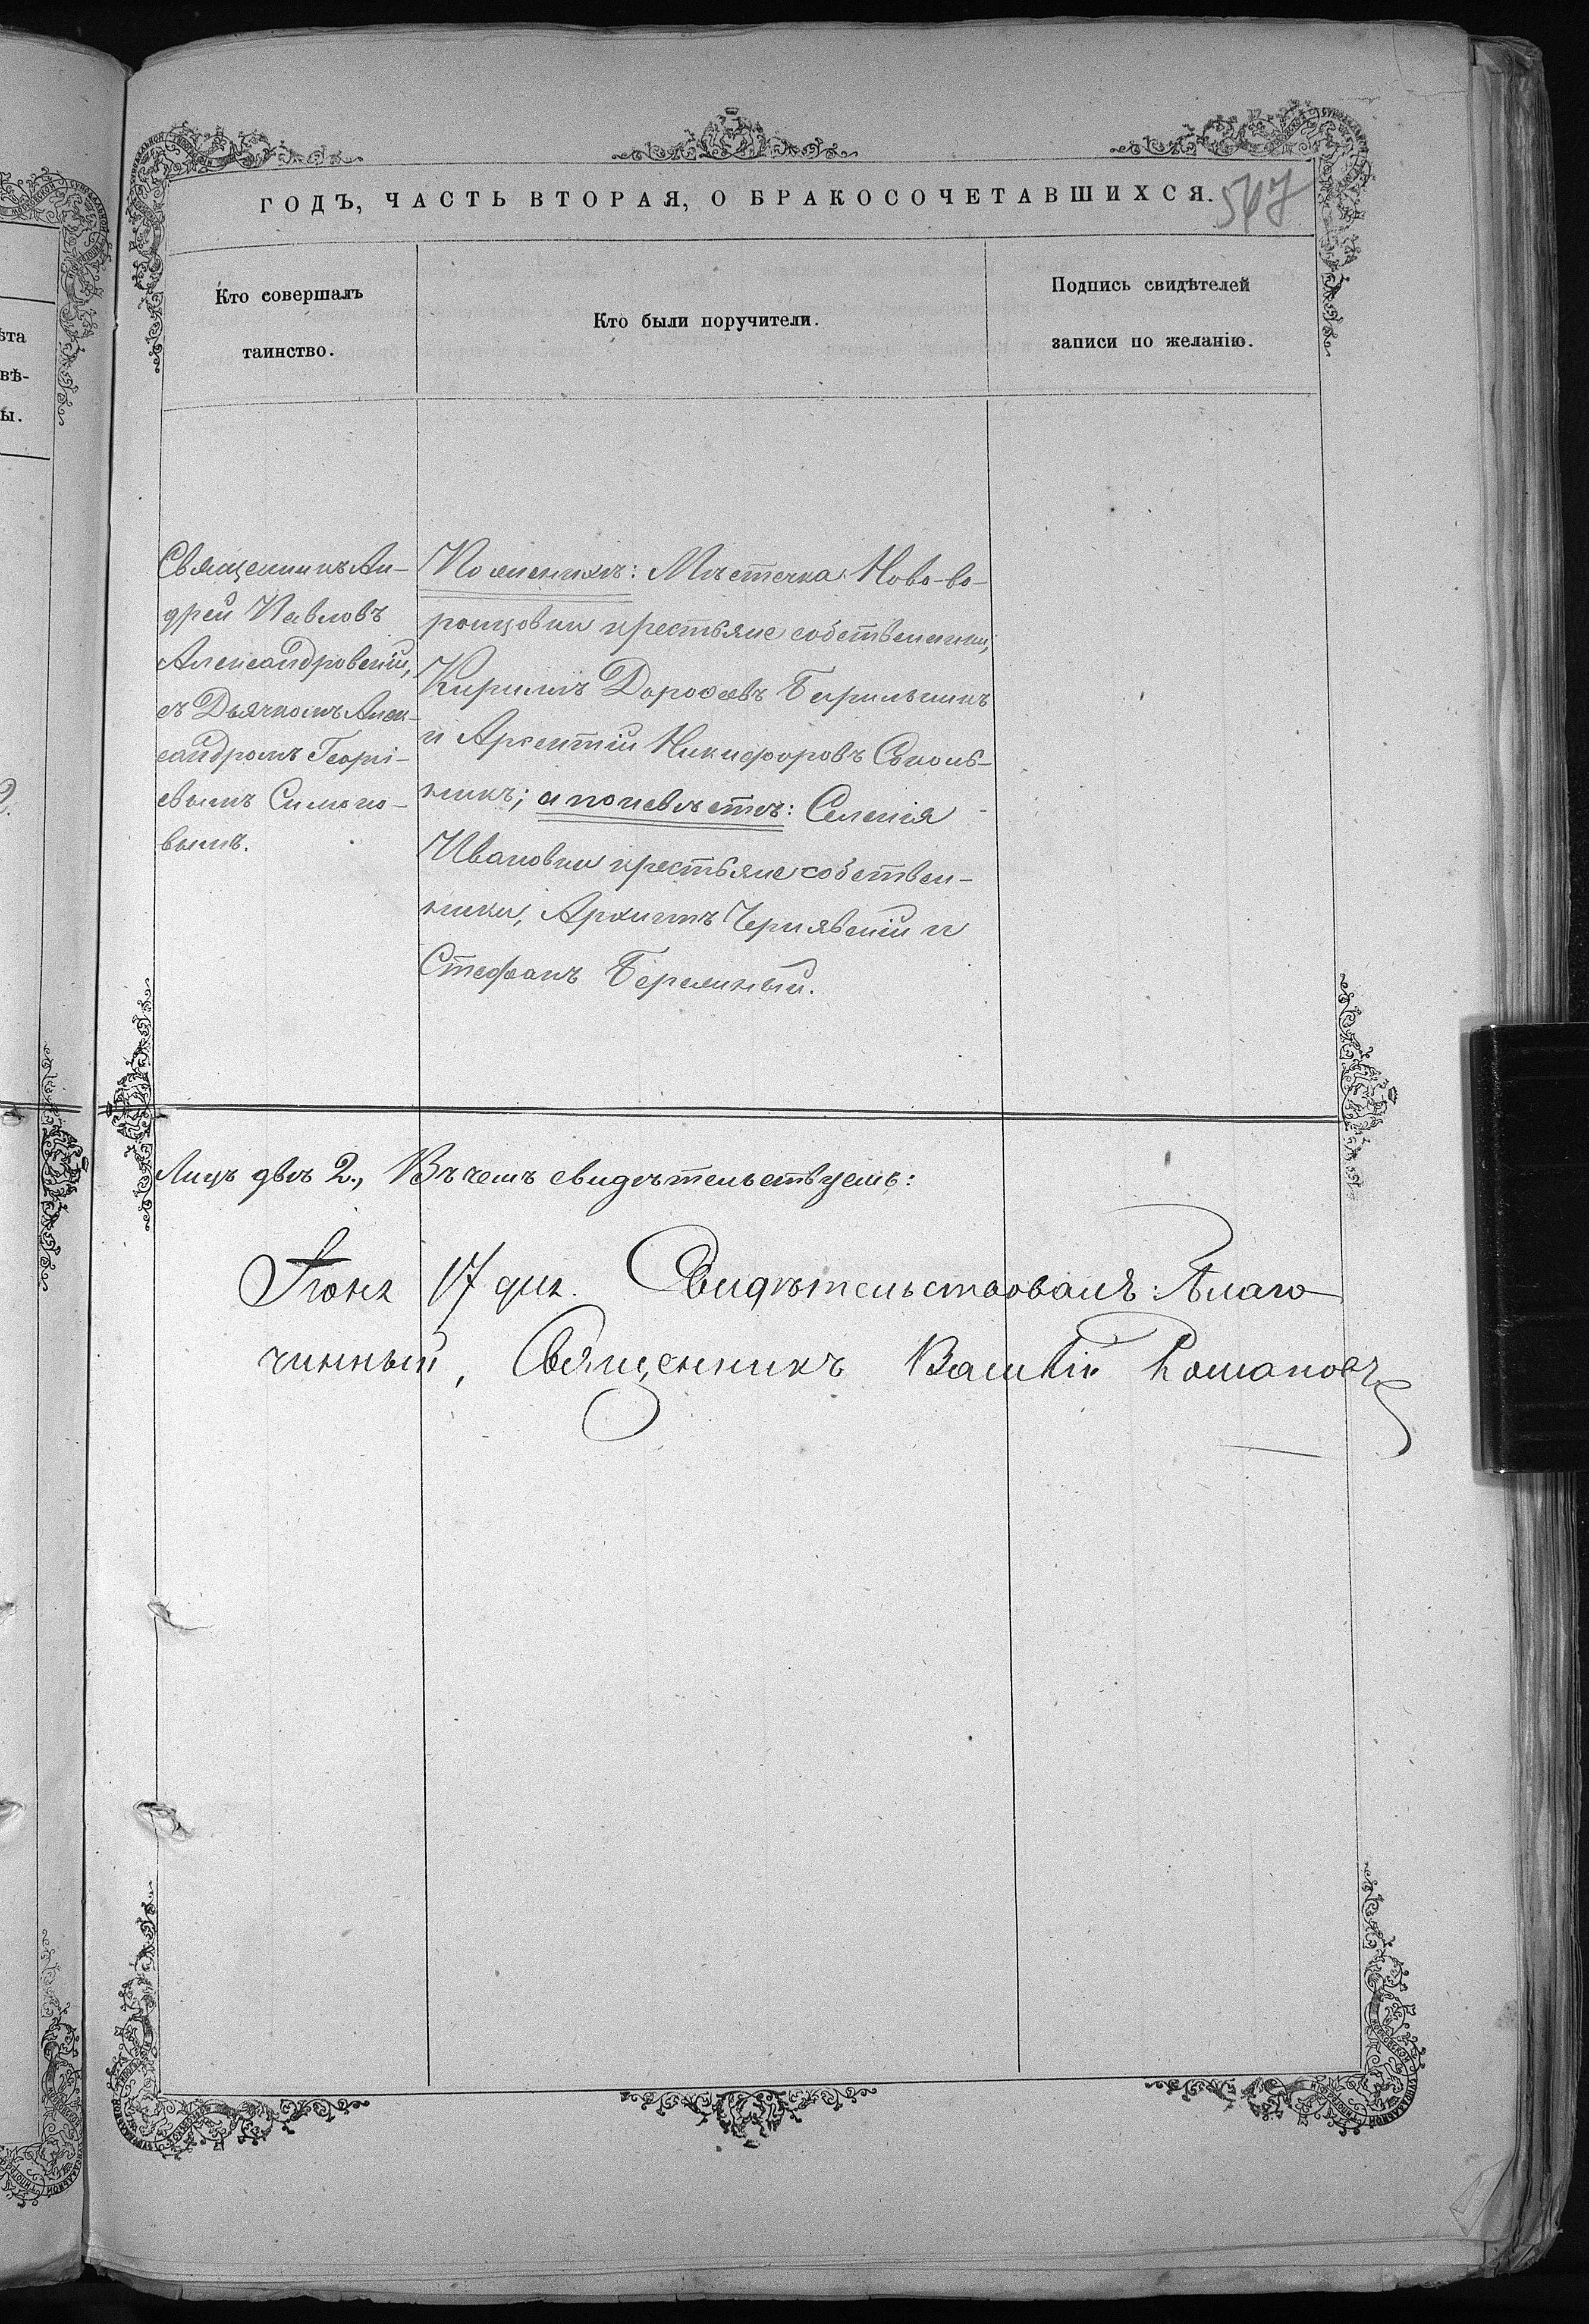 ГОДЪ, ЧАСТЬ ВТОРАЯ, О БРАКОСОЧЕТАВШИХСЯ.
547
Кто совершалъ
таинство.
Кто были поручители.
Подпись свидѣтелей
записи по желанію.
ѣта
вѣ-
ы.
Священникъ Ан-
дрей Павловъ
Александровскій,
съ Дьячкомъ Алек-
сандромъ Георгі-
евымъ Симоно-
вымъ.
По женихѣ: Мѣстечка Ново-во-
ронцовки крестьяне собственники,
Кириллъ Дорофеевъ
и Арсентій Никифоровъ Соколь-
никъ; а по невѣстѣ: Селенія
Ивановки крестьяне собствен-
ники, Архипъ Чернявскій и
Стефанъ Бережный.
Лицъ двѣ 2., Въ чемъ свидѣтельствуемъ:
Іюня 17 дня. Свидѣтельствовалъ: Благо
чинный, Священникъ Романовъ